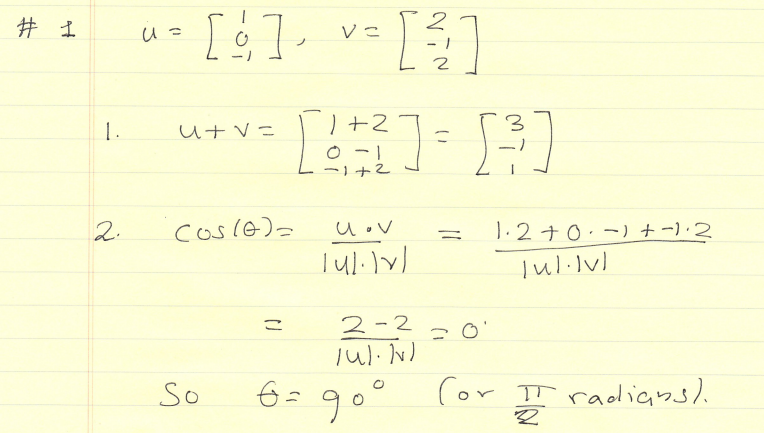 # 1 u = [1 0 -1], v = [2 -1 2]
1. u+v = [1+2 0-1 -1+2] = [3 -1 1]
2. cos(θ) = u•v / |u|·|v| = 1·2+0·-1+-1·2 / |u|·|v|
= 2-2 / |u|·|v| = 0
So θ = 90° (or π/2 radians).